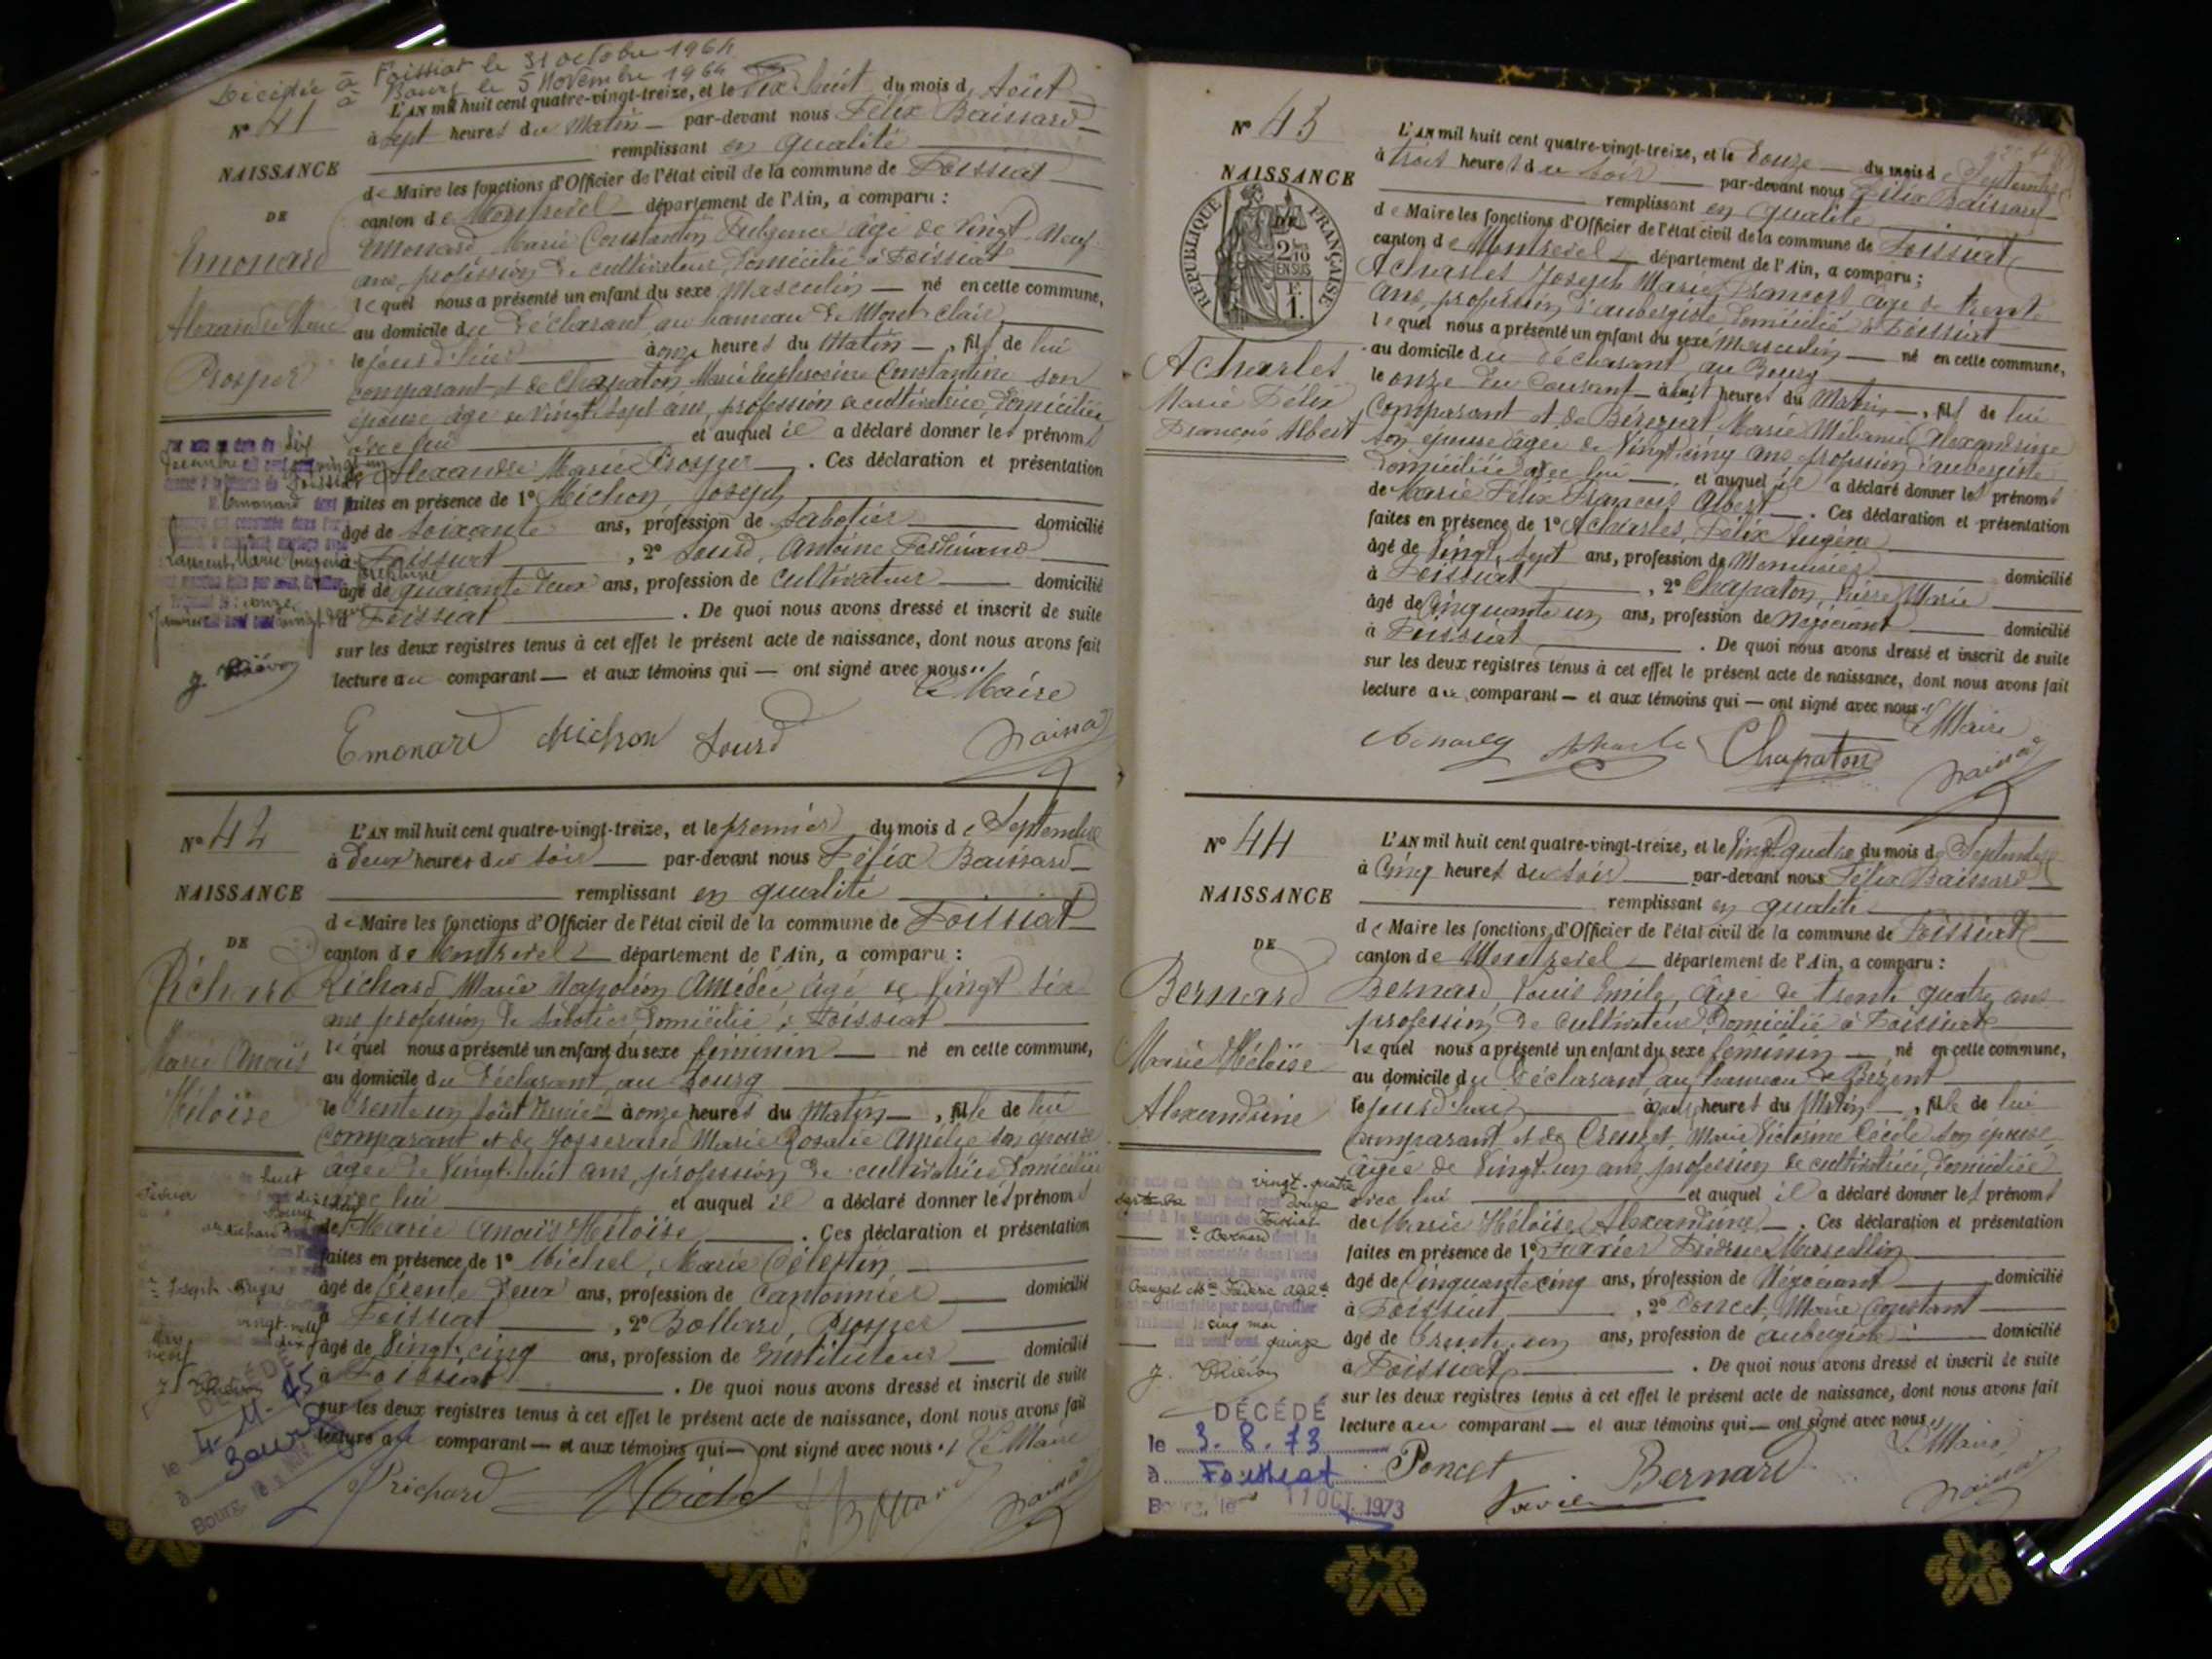 Décédé à Foissiat le 31 octobre 1964
à Bourg le 5 Novembre 1964
N° 41
NAISSANCE
DE
Emonard
Alexandre Marie
Prosper
L'AN mil huit cent quatre-vingt-treize, et le dix huit du mois d'Août
à sept heures du Matin par-devant nous Félix Baissard
remplissant en qualité
de Maire les fonctions d'Officier de l'état civil de la commune de Foissiat
canton de Montrevel département de l'Ain, a comparu :
Emonard, Marie Constantin Fulgence âgé de vingt neuf
ans, profession de cultivateur, domicilié à Foissiat
lequel nous a présenté un enfant du sexe Masculin né en cette commune,
au domicile du déclarant, au hameau de Mont-clair
le jour d'hier à onze heures du Matin, fils de lui
comparant et de Chapaton Marie Euphrosine Constantine son
épouse âgé de vingt sept ans, profession de cultivatrice, domiciliée
avec lui et auquel il a déclaré donner les prénoms
de Alexandre Marie Prosper. Ces déclaration et présentation
faites en présence de 1° Michon, Joseph
âgé de soixante ans, profession de sabotier domicilié
à Foissiat, 2° Sourd, Antoine Ferdinand
âgé de quarante deux ans, profession de cultivateur domicilié
à Foissiat. De quoi nous avons dressé et inscrit de suite
sur les deux registres tenus à cet effet le présent acte de naissance, dont nous avons fait
lecture au comparant et aux témoins qui ont signé avec nous.
Le Maire
Emonard Michon Sourd Baissard
N° 42
NAISSANCE
DE
Richard
Marie Anaïs
Héloïse
L'AN mil huit cent quatre-vingt-treize, et le premier du mois de Septembre
à deux heures du soir par-devant nous Félix Baissard
remplissant en qualité
de Maire les fonctions d'Officier de l'état civil de la commune de Foissiat
canton de Montrevel département de l'Ain, a comparu :
Richard Marie Napoléon Amédée âgé de vingt six
ans profession de sabotier, domicilié à Foissiat
lequel nous a présenté un enfant du sexe féminin né en cette commune,
au domicile du déclarant, au bourg
le trente un Août dernier à onze heures du Matin, fille de lui
comparant et de Josserand Marie Rosalie Amélie son épouse
âgée de vingt-huit ans, profession de cultivatrice domiciliée
avec lui et auquel il a déclaré donner les prénoms
de Marie Anaïs Héloïse. Ces déclaration et présentation
faites en présence de 1° Michel, Marie Célestin
âgé de trente deux ans, profession de cantonnier domicilié
à Foissiat, 2° Bollard, Prosper
âgé de vingt-cinq ans, profession de instituteur domicilié
à Foissiat. De quoi nous avons dressé et inscrit de suite
sur les deux registres tenus à cet effet le présent acte de naissance, dont nous avons fait
lecture au comparant et aux témoins qui ont signé avec nous. Le Maire
Richard Michel Bollard Baissard
DÉCÉDÉ
N° 43
NAISSANCE
DE
RÉPUBLIQUE FRANÇAISE
2/10 EN SUS
F. 1.
Acharles
Marie Félix
François Albert
L'AN mil huit cent quatre-vingt-treize, et le douze du mois de Septembre
à trois heures du soir par-devant nous Félix Baissard
remplissant en qualité
de Maire les fonctions d'Officier de l'état civil de la commune de Foissiat
canton de Montrevel département de l'Ain, a comparu ;
Acharles Joseph Marie François âgé de trente
ans, profession d'aubergiste domicilié à Foissiat
lequel nous a présenté un enfant du sexe Masculin né en cette commune,
au domicile du déclarant, au Bourg
le onze du courant à huit heures du Matin, fils de lui
Comparant et de Béréziat Marie Mélanie Alexandrine
son épouse âgée de vingt-cinq ans profession d'aubergiste
domiciliée avec lui, et auquel il a déclaré donner les prénoms
de Marie Félix François Albert. Ces déclaration et présentation
faites en présence de 1° Acharles, Félix Eugène
âgé de vingt sept ans, profession de Menuisier domicilié
à Foissiat, 2° Chapaton, Pierre Marie
âgé de Cinquante un ans, profession de Négociant domicilié
à Foissiat. De quoi nous avons dressé et inscrit de suite
sur les deux registres tenus à cet effet le présent acte de naissance, dont nous avons fait
lecture au comparant et aux témoins qui ont signé avec nous.
Le Maire
Chapaton Baissard
N° 44
NAISSANCE
DE
Bernard
Marie Héloïse
Alexandrine
L'AN mil huit cent quatre-vingt-treize, et le vingt quatre du mois de Septembre
à Cinq heures du soir par-devant nous Félix Baissard
remplissant en qualité
de Maire les fonctions d'Officier de l'état civil de la commune de Foissiat
canton de Montrevel département de l'Ain, a comparu :
Bernard, Louis Emile, âgé de trente quatre ans
profession de cultivateur domicilié à Foissiat
lequel nous a présenté un enfant du sexe féminin né en cette commune,
au domicile du déclarant, au hameau de
le jour d'hui à heures du Matin, fille de lui
comparant et de Creuzet, Marie Victorine Cécile son épouse
âgée de vingt-un ans, profession de cultivatrice, domiciliée
avec lui et auquel il a déclaré donner les prénoms
de Marie Héloïse Alexandrine. Ces déclaration et présentation
faites en présence de 1° Marcellin
âgé de Cinquante cinq ans, profession de Négociant domicilié
à Foissiat, 2° Poncet, Marie Constant
âgé de trente-un ans, profession de aubergiste domicilié
à Foissiat. De quoi nous avons dressé et inscrit de suite
sur les deux registres tenus à cet effet le présent acte de naissance, dont nous avons fait
lecture au comparant et aux témoins qui ont signé avec nous.
Le Maire
Poncet Bernard Baissard
vingt-quatre
septembre mil neuf cent douze
Foissiat
Bernard dont la
naissance est constatée dans l'acte
cinq mai
mil neuf cent quinze
DÉCÉDÉ
le 3.8.73
à Foissiat
Bourg, le 11 OCT. 1973